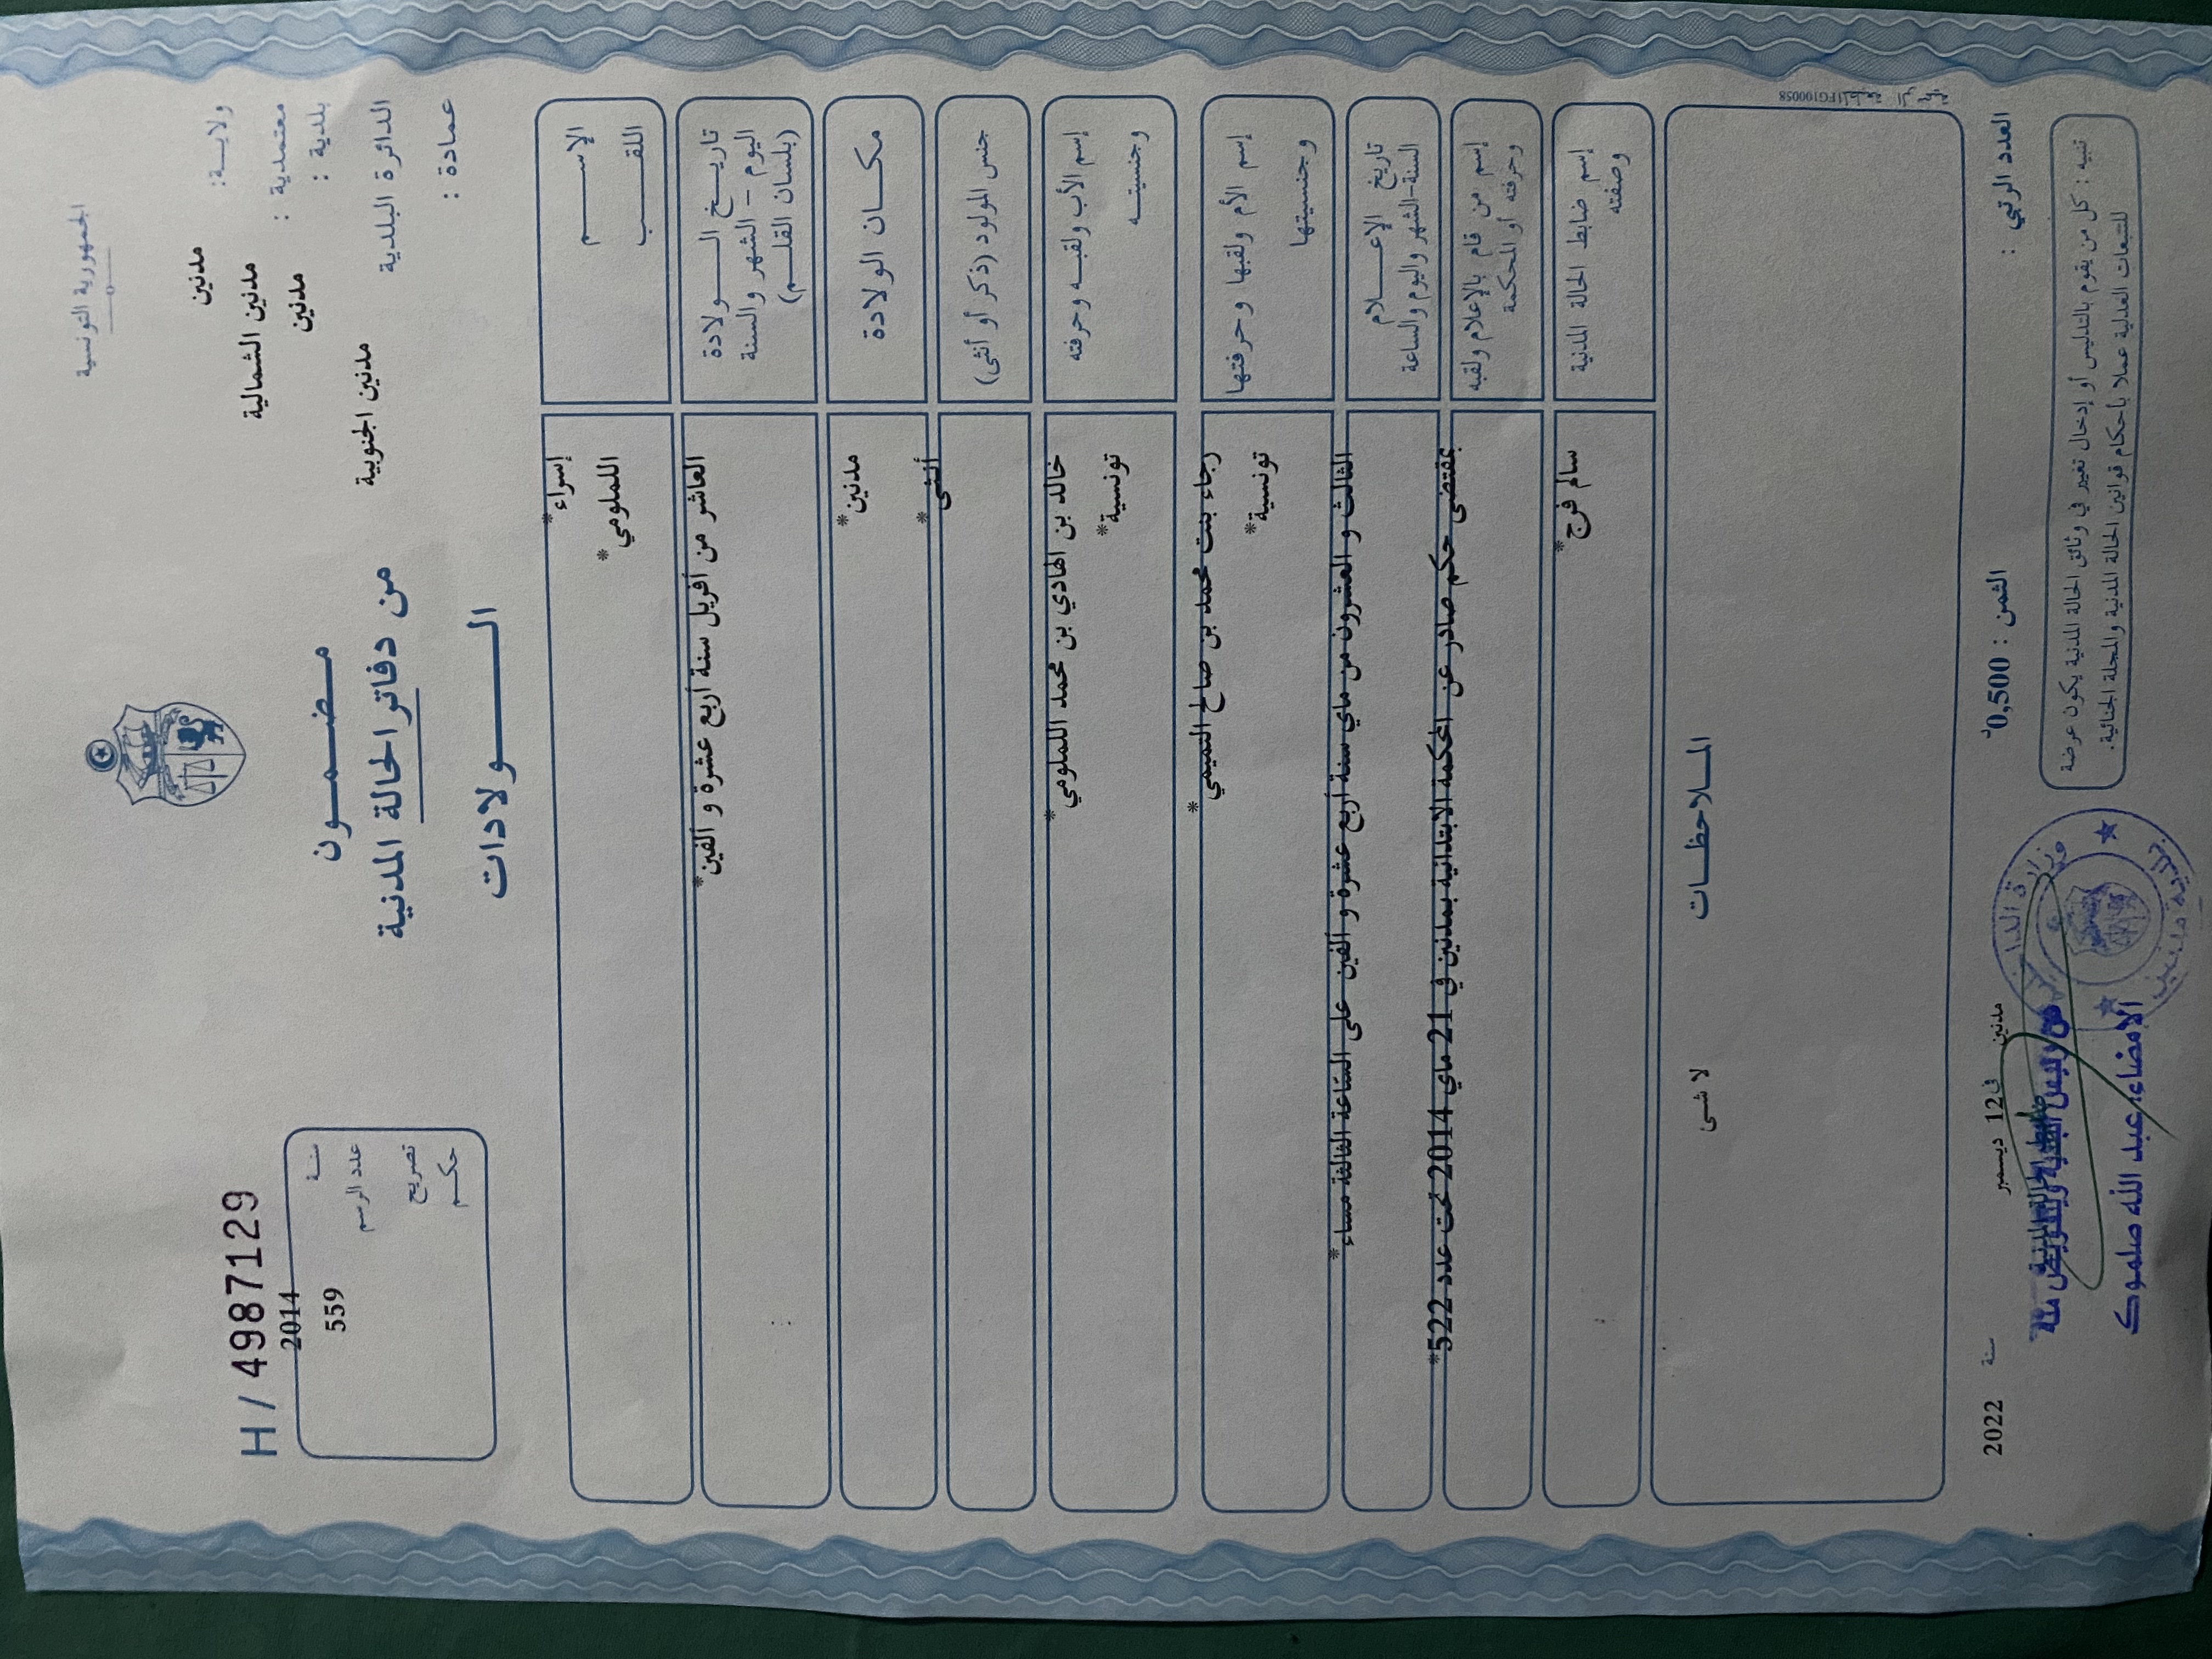 الجمهورية التونسية
ولايـــة: مدنين
معتمدية : مدنين الشمالية
بلدية : مدنين
الدائرة البلدية مدنين الجنوبية
عمادة :
مـــضـــمـــون
من دفاتر الحالة المدنية
الـــــولادات
H / 4987129
سنـــة 2014
عدد الرسم 559
تصريح
حكـــم
الإســــــم إسراء*
اللقـــــب اللملومي*
تاريـــخ الـــــولادة العاشر من أفريل سنة أربع عشرة و ألفين*
اليوم – الشهر والسنة
(بلسان القلـــم)
مكـــان الولادة مدنين*
جنس المولود (ذكر أو أنثى) أنثى*
إسم الأب ولقبـــه وحرفته خالد بن الهادي بن محمد اللملومي*
وجنسيتـــه تونسية*
إسم الأم ولقبها وحرفتها رجاء بنت محمد بن صالح التميمي*
وجنسيتها تونسية*
تاريخ الإعـــــلام الثالث و العشرون من ماي سنة أربع عشرة و ألفين على الساعة الثالثة مساء*
السنة-الشهر واليوم والساعة
إسم من قام بالإعلام ولقبه بمقتضى حكم صادر عن المحكمة الابتدائية بمدنين في 21 ماي 2014 تحت عدد 522*
وحرفته أو المحكمة
إسم ضابط الحالة المدنية سالم فرج*
وصفته
المـــلاحظـــات لا شى
FG100058
العدد الرتبي :
الثمن : 0,500د
مدنين في 12 ديسمبر سنة 2022
تنبيه : كل من يقوم بالتدليس أو إدخال تغيير في وثائق الحالة المدنية يكون عرضة
للتتبعات العدلية عملا بأحكام قوانين الحالة المدنية والمجلة الجنائية.
عن رئيس البلدية وبتفويض منه
الامضاء: عبد الله صلموك